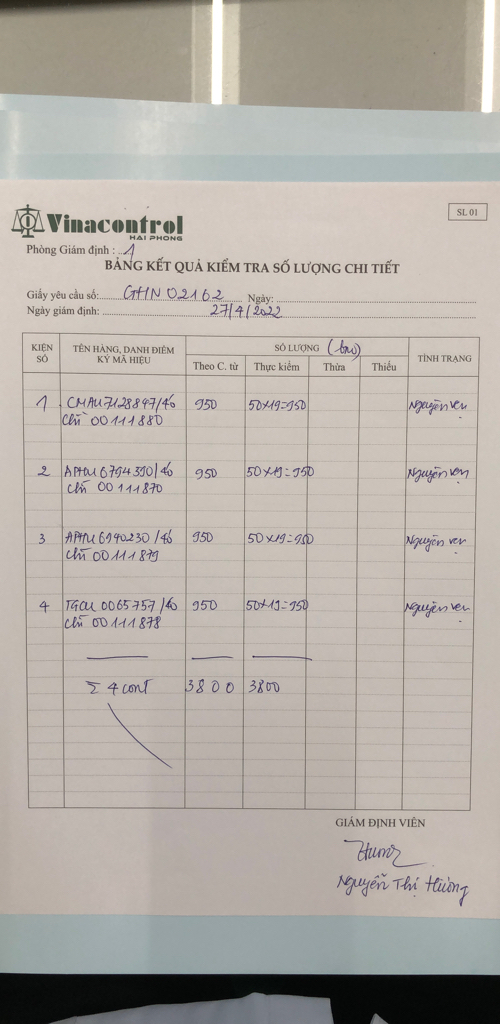 SL 01
Vinacontrol
HAI PHONG
Phòng Giám định : 1
BẢNG KẾT QUẢ KIỂM TRA SỐ LƯỢNG CHI TIẾT
Giấy yêu cầu số: GHN 02162 Ngày:
Ngày giám định: 27/4/2022
KIỆN SỐ TÊN HÀNG, DANH ĐIỂM KÝ MÃ HIỆU SỐ LƯỢNG (bao) TÌNH TRẠNG
Theo C. từ Thực kiểm Thừa Thiếu
1 CMAU7128847/40 950 50x19=950 Nguyên vẹn
chì 00111880
2 APHU6794390/40 950 50x19=950 Nguyên vẹn
chì 00111870
3 APHU6940230/40 950 50x19=950 Nguyên vẹn
chì 00111879
4 TGCU0065757/40 950 50x19=950 Nguyên vẹn
chì 00111878
Σ 4 cont 3800 3800
GIÁM ĐỊNH VIÊN
Hương
Nguyễn Thị Hường